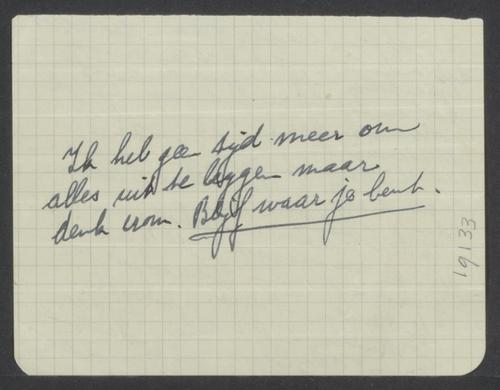 Ik heb geen tijd meer om
alles uit te leggen maar
denk erom. Blijf waar je bent.
19133